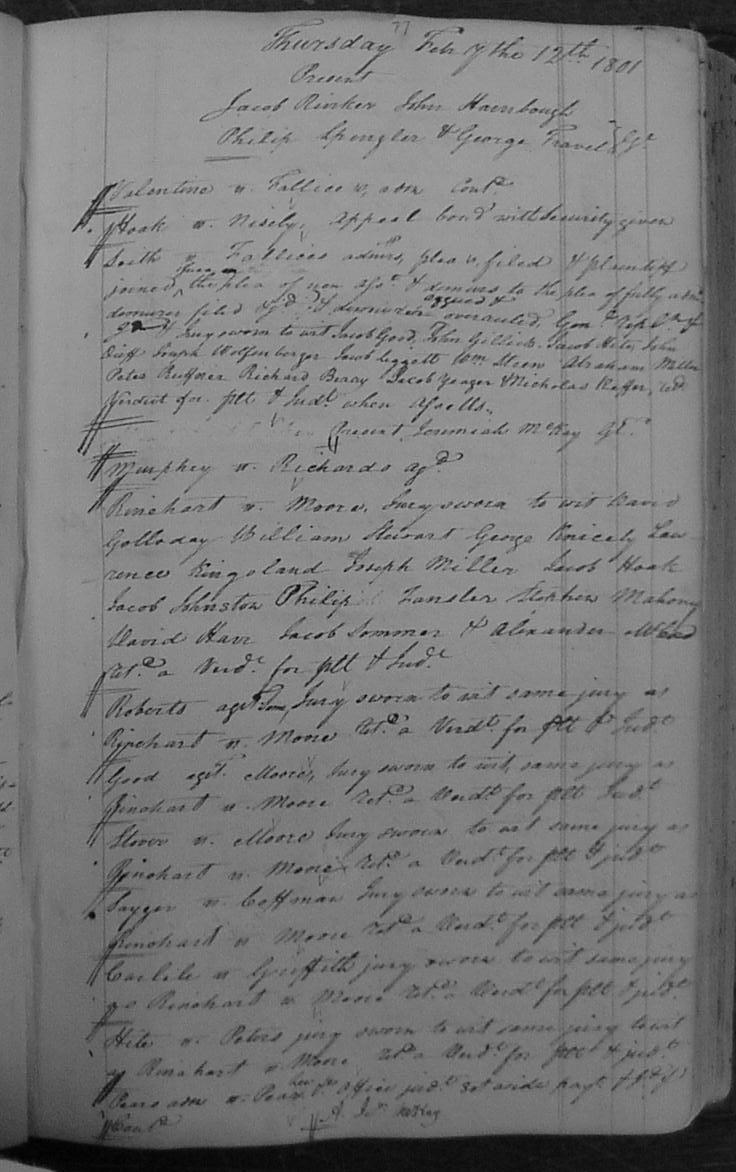 77
Thursday Feb'y the 12th 1801
Present
Jacob Rinker John Hambough
Philip Spengler & George Fravel Gt
Valentine vs. Fallice's adm Contd
Hoak vs. Nisely, Appeal bond with Security given
Seith vs Fallices admrs, plea filed & plaintiff
joined the plea of non asst & demurs to the plea of fully
demurer filed & demurrer argued & overruled
& Jury sworn to wit Jacob Good, John Gillick Jacob Hite, John
Joseph Wolfenberger Jacob Leggett Wm Steen Abraham Miller
Peter Ruffner Richard Beray Jacob Yeager & Nicholas Keffer, retd
Verdict for plt & Judt when assetts
Present Jeremiah McKay Gt
Murphey vs. Richards agd
Rinehart vs. Moore, Jury sworn to wit David
Golloday William Stewart George Knicely Law
rence Kingoland Joseph Miller Jacob Hoak
Jacob Johnston Philip Fansler Stephen Mahony
David Harr Jacob Sommer & Alexander
ret.d a Verdt for plt & Judt
Roberts agst Same, Jury sworn to wit same jury as
Rinehart vs. Moore Ret.d a Verdt for plt & Judt
Good agst. Moore, Jury sworn to wit, same jury as
Rinehart vs. Moore Ret.d a Verdt for plt Judt
Stover vs. Moore Jury sworn to wit same jury as
Rinehart vs. Moore Ret.d a Verdt for plt & judt
Sayger vs. Coffman Jury sworn to wit same jury as
Rinehart vs Moore ret.d a Verdt for plt & judt
Carlile vs Griffith jury sworn to wit same jury
as Rinehart vs Moore Ret.d a Verdt for plt & judt
Hite vs. Peters jury sworn to wit same jury to wit
as Rinehart vs Moore retd a Verdt for plt & judt
Pears adm vs. Office judt set aside payt
Contd